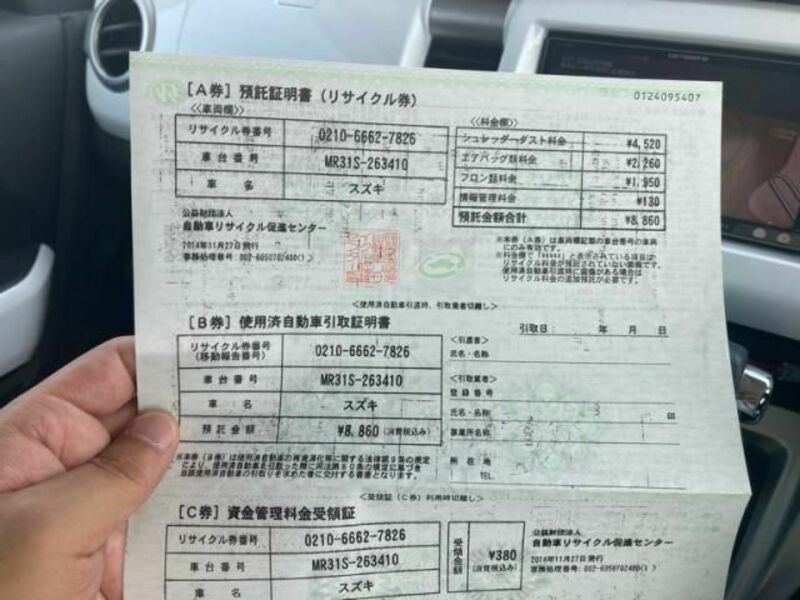 ［A券］預託証明書（リサイクル券）
0124095407
≪車両欄≫
リサイクル券番号 0210-6662-7826
車台番号 MR31S-263410
車名 スズキ
≪料金欄≫
シュレッダーダスト料金 ¥4,520
エアバッグ類料金 ¥2,260
フロン類料金 ¥1,950
情報管理料金 ¥130
預託金額合計 ¥8,860
公益財団法人
自動車リサイクル促進センター
2014年11月27日発行
※本券（A券）は車両欄記載の車台番号の車両
にのみ有効です。
※料金欄で「*****」と表示されている項目は
リサイクル料金が預託されていない装備です。
使用済自動車引渡時に装備がある場合は
リサイクル料金の追加預託が必要です。
＜使用済自動車引渡時、引取業者切離し＞
［B券］使用済自動車引取証明書
引取日： 年 月 日
リサイクル券番号
（移動報告番号）
0210-6662-7826
車台番号 MR31S-263410
車名 スズキ
預託金額 ¥8,860（消費税込み）
＜引渡者＞
氏名・名称
＜引取業者＞
登録番号
氏名・名称 印
事業所名称
所在地
TEL
＜受領証（C券）利用時切離し＞
［C券］資金管理料金受領証
リサイクル券番号 0210-6662-7826
車台番号 MR31S-263410
車名 スズキ
受領金額 ¥380
（消費税込み）
公益財団法人
自動車リサイクル促進センター
2014年11月27日発行